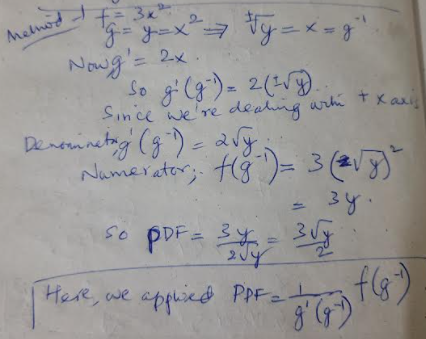 Method-1 f = 3x²
g = y = x² ⇒ ±√y = x = g⁻¹
Now g' = 2x.
So g'(g⁻¹) = 2(±√y)
Since we're dealing with + x axis
Denominator, g'(g⁻¹) = 2√y.
Numerator; f(g⁻¹) = 3(√y)²
= 3y.
So PDF = 3y/2√y = 3√y/2
Here, we applied PDF = 1/g'(g⁻¹) f(g⁻¹)